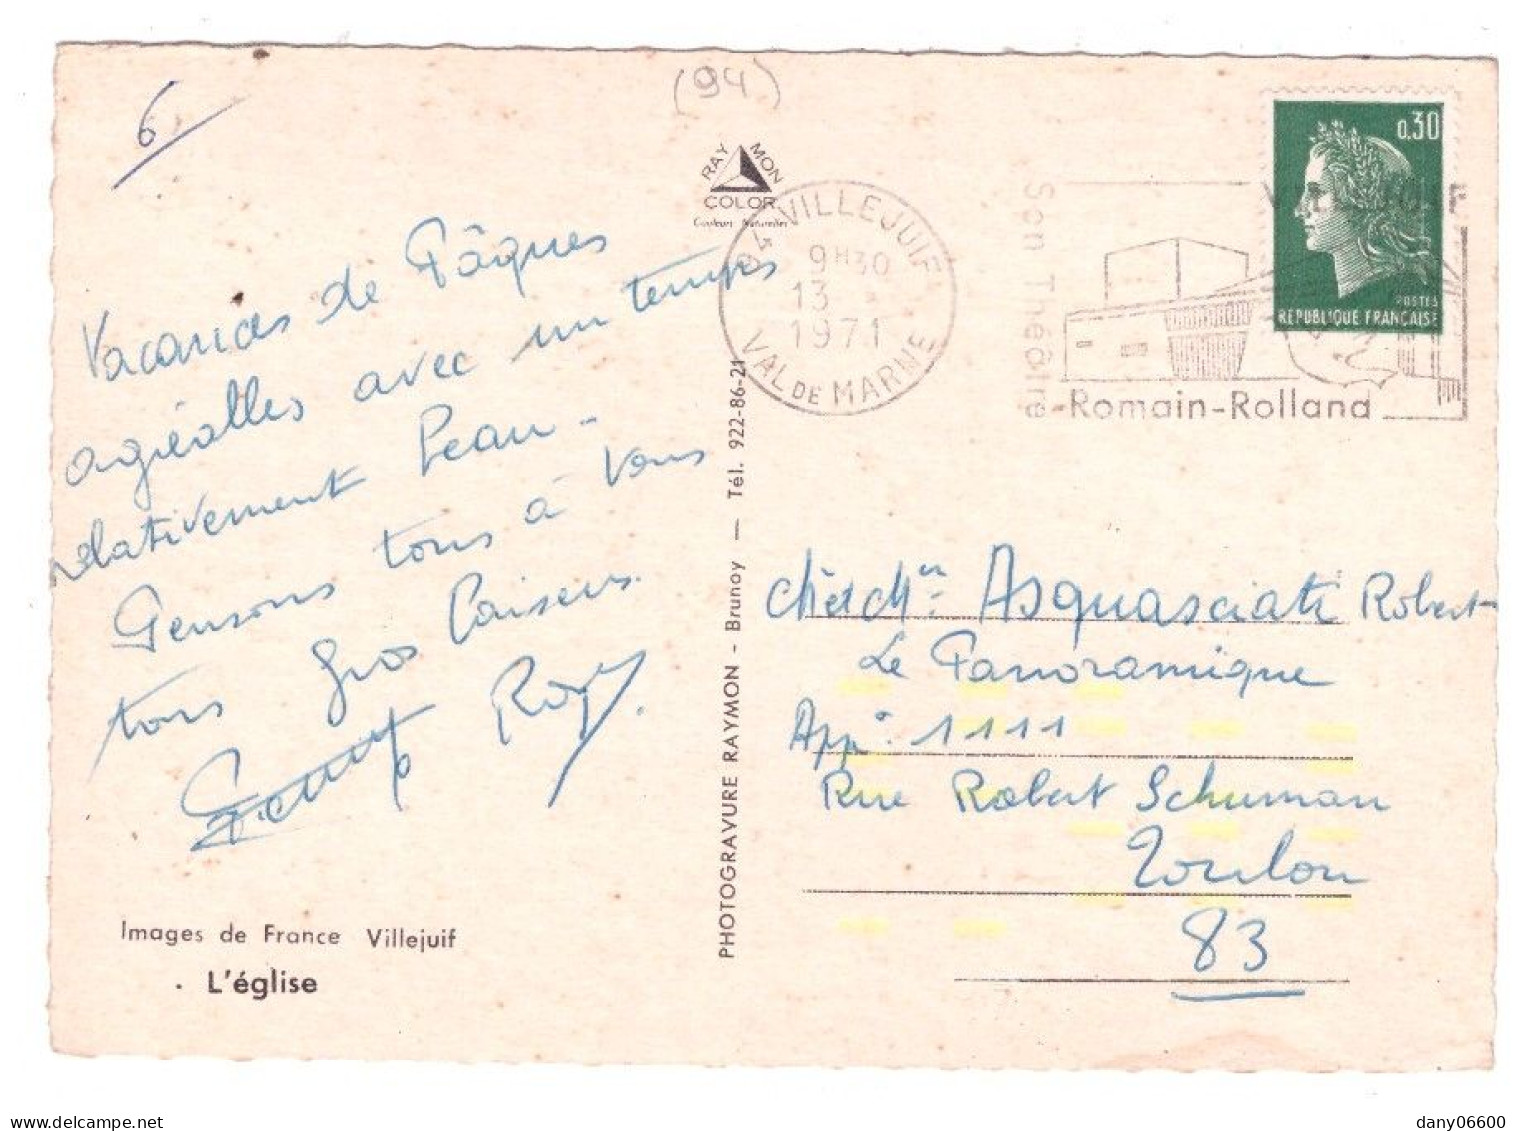 6
(94)
RAYMON
COLOR
Couleurs Naturelles
94 VILLEJUIF
9H30
13
1971
VAL DE MARNE
Son Théâtre
Romain-Rolland
0,30
POSTES
REPUBLIQUE FRANÇAISE
Vacances de Pâques
agréables avec un temps
relativement beau -
Pensons tous à vous
tous gros baisers.
Roger
Images de France Villejuif
L'église
PHOTOGRAVURE RAYMON - Brunoy — Tél. 922-86-21
Asquasciati Robert
Le Panoramique
App. 1111
Rue Robert Schuman
Toulon
83
dany06600